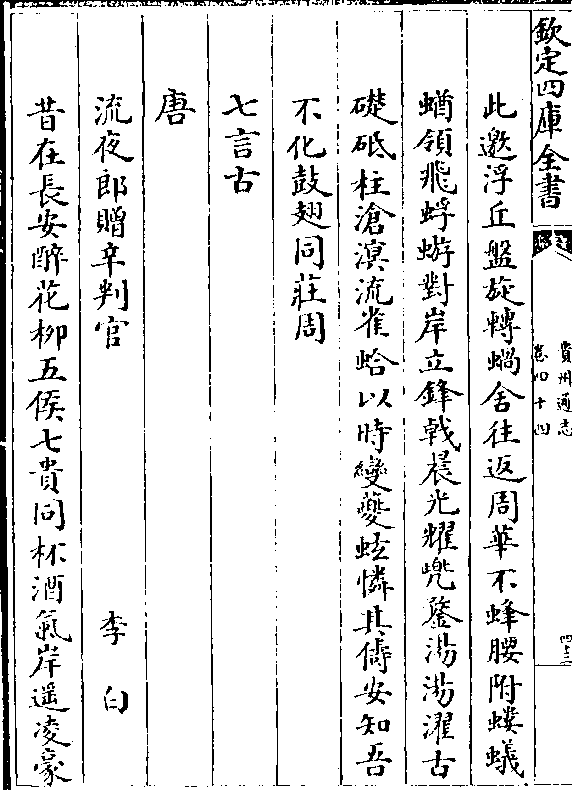 欽定四庫全書
貴州通志
卷四十四
此邀浮丘盤旋轉蝸舍往返周華不蜂腰附螻蟻
蝤領飛蜉蝣對岸立鋒戟晨光耀兠鍪湯湯濯古
礎砥柱滄溟流雀蛤以時變夔蚿憐其儔安知吾
不化鼓翅同莊周
七言古
唐
流夜郎贈辛判官 李白
昔在長安醉花柳五侯七貴同杯酒氣岸遥凌豪